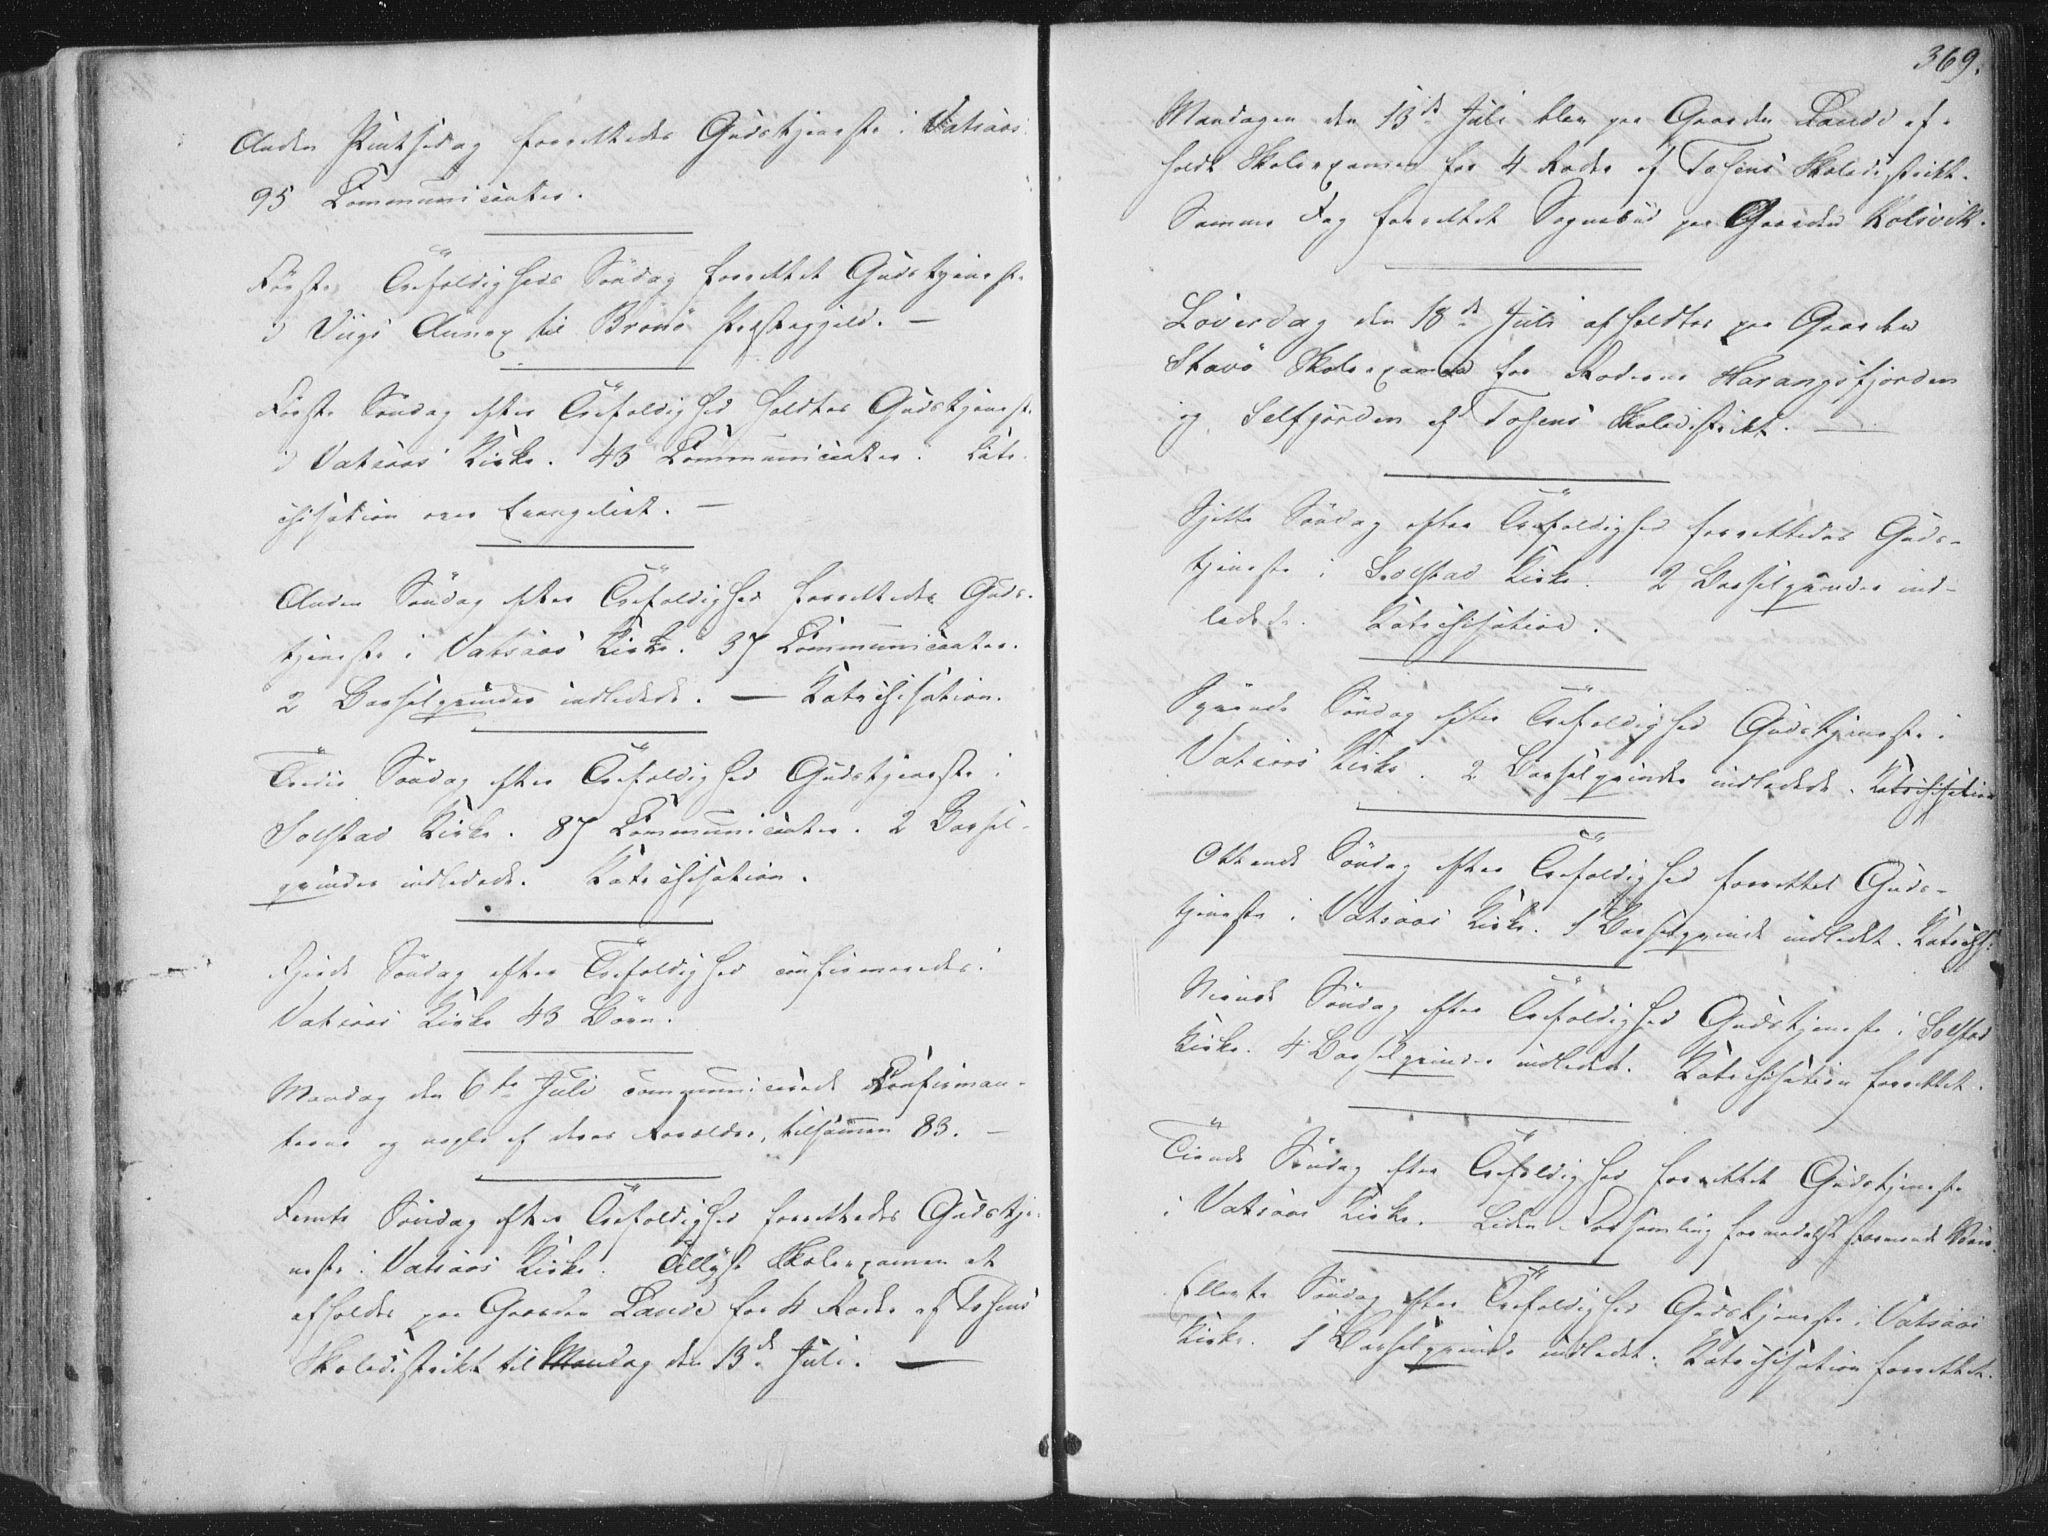 Anden Pintsedag forrettedes Gudstjeneste i Vatsaas
95 Communicanter.
Første Trefoldigheds Søndag forrettet Gudstjeneste
i Viigs Annex til Brønø Præstegjeld. —
Første Søndag efter Trefoldighed holdtes Gudstjeneste
i Vatsaas Kirke. 43 Communicanter. Kate-
chisation over Evangeliet. —
Anden Søndag efter Trefoldighed forrettedes Guds-
tjeneste i Vatsaas Kirke. 37 Communicanter.
2 Barselqvinder indledede. — Katechisation.
Tredie Søndag efter Trefoldighed Gudstjeneste i
Solstad Kirke. 87 Communicanter. 2 Barsel-
qvinder indledede. Katechisation.
Fjerde Søndag efter Trefoldighed confirmeredes i
Vatsaas Kirke 43 Børn.
Mandag den 6te Juli communicerede Confirman-
terne og nogle af deres Forældre, tilsammen 83. —
Femte Søndag efter Trefoldighed forrettedes Gudstje-
neste i Vatsaas Kirke. Tillyst Skoleexamen at
afholdes paa Gaarden Lande for 4 Roder af Tosens
Skoledistrikt til Mandag den 13de Juli. —
369.
Mandagen den 13de Juli blev paa Gaarden Lande af-
holdt Skoleexamen for 4 Roder af Tosens Skoledistrikt.
Samme Dag forrettet Sognebud paa Gaarden Kolsvik.
Løverdag den 18de Juli afholdtes paa Gaarden
Stavø Skoleexamen for Roderne Harangsfjorden
og Selfjorden af Tosens Skoledistrikt. —
Sjette Søndag efter Trefoldighed forrettedes Guds-
tjeneste i Solstad Kirke. 2 Barselqvinder ind-
ledede. Katechisation.
Syvende Søndag efter Trefoldighed Gudstjeneste i
Vatsaas Kirke. 2 Barselqvinder indledede. Katechisation
Ottende Søndag efter Trefoldighed forrettet Guds-
tjeneste i Vatsaas Kirke. 1 Barselqvinde indledet. Katechis:
Niende Søndag efter Trefoldighed Gudstjeneste i Solstad
Kirke. 4 Barselqvinder indledet. Katechisation forrettet.
Tiende Søndag efter Trefoldighed forrettet Gudstjeneste
i Vatsaas Kirke. Liden Forsamling formedelst stormende Veir.
Ellevte Søndag efter Trefoldighed Gudstjeneste i Vatsaas
Kirke. 1 Barselqvinde indledet. Katechisation forrettet.